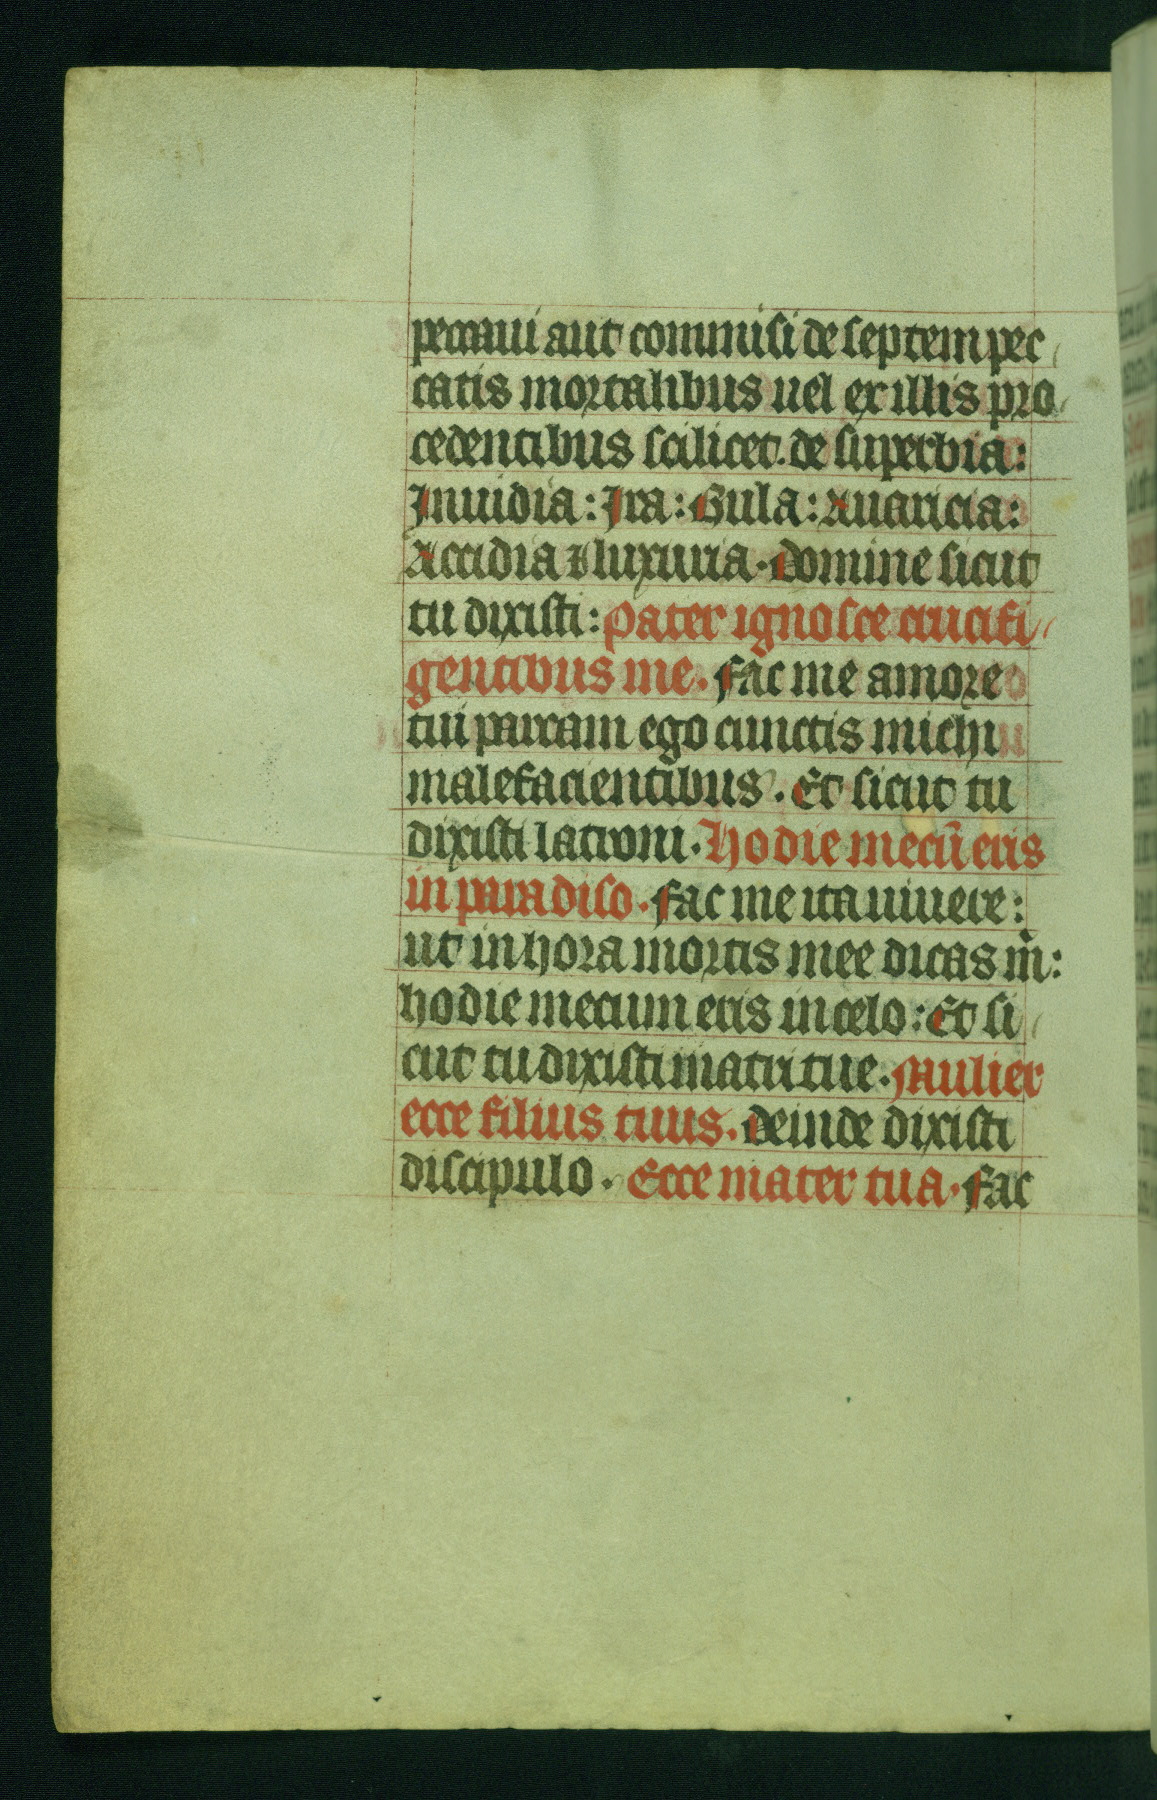 peccaui aut commisi de septem pec
catis mortalibus uel ex illis pro
cedentibus scilicet. de superbia:
Inuidia: Ira: Gula: Auaricia:
Accidia ⁊ luxuria. Domine sicut
tu dixisti: Pater ignosce crucifi
gentibus me. Fac me amore
tui parcam ego cunctis michi
malefacientibus. Et sicut tu
dixisti latroni. Hodie mecū eris
in paradiso. Fac me ita uiuere:
ut in hora mortis mee dicas m̄:
hodie mecum eris in celo: Et si
cut tu dixisti matri tue. Mulier
ecce filius tuus. Deinde dixisti
discipulo. Ecce mater tua. Fac